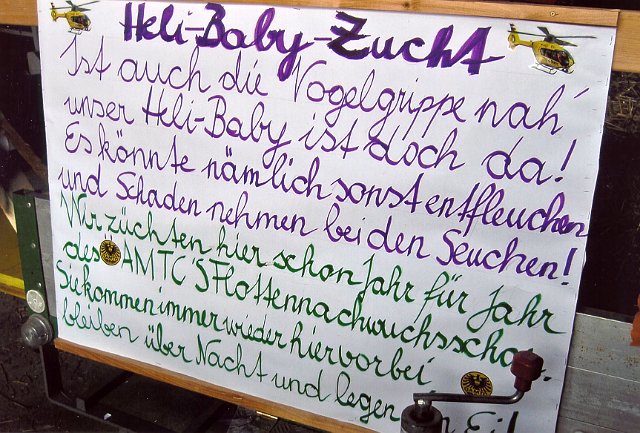 Heli-Baby-Zucht
Ist auch die Vogelgrippe nah'
unser Heli-Baby ist doch da!
Es könnte nämlich sonst entfleuchen
und Schaden nehmen bei den Seuchen!
Wir züchten hier schon Jahr für Jahr
des ÖAMTC'S Flottennachwuchsschar.
Sie kommen immer wieder hier vorbei
bleiben über Nacht und legen Ei.